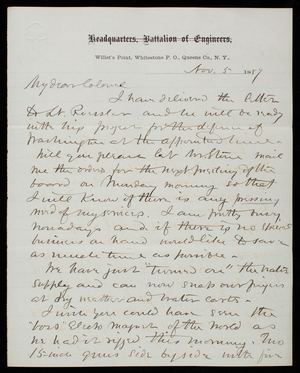 Headquarters, Battalion of Engineers,
Willet's Point, Whitestone P. O., Queens Co., N. Y.,
Nov. 5 1887
My dear Colonel
I have delivered the letter
to Lt. and he will be ready
with his project for the defence of
Washington at the appointed time.
Will you please let mail
me the orders for the next meeting of the
board on Monday morning so that
I will know if there is any pressing
need of my services. I am pretty busy
nowadays and if there is no
business on hand would like to save
as much time as possible.
We have just "turned on" the water
supply and can now snap our fingers
at dry weather and water carts.
I wish you could have seen the
"boss" Electro magnet of the world as
we had it rigged this morning. Two
15-inch guns side by side with five